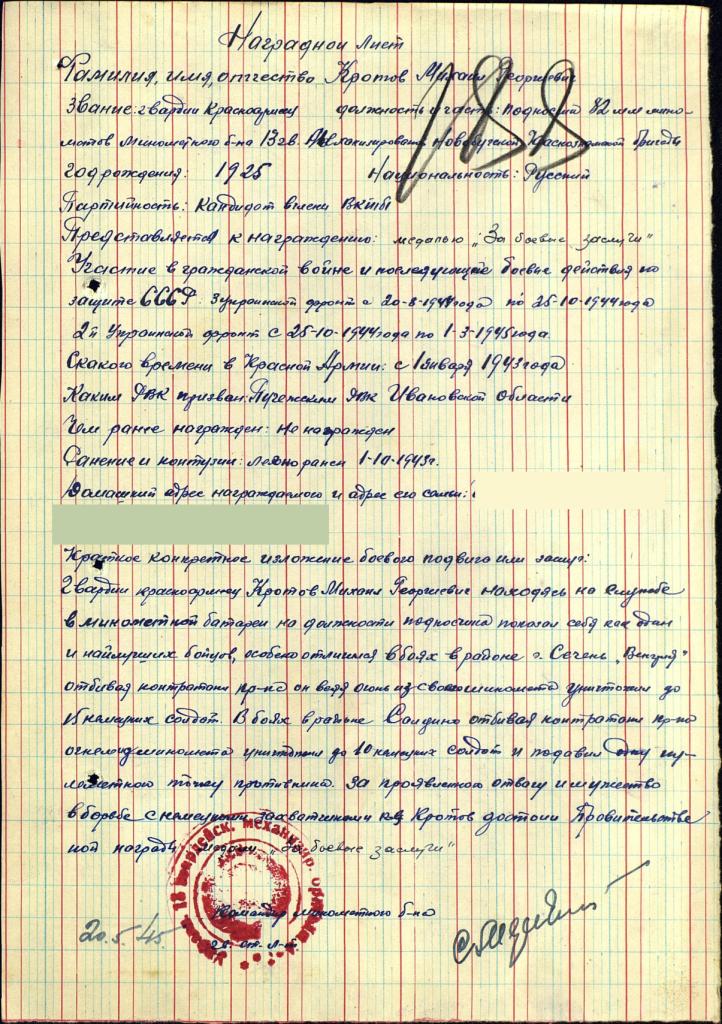 Наградной Лист
Фамилия, имя, отчество Кротов Михаил Георгиевич
Звание: гвардии Красноармеец должность и часть: подносчик 82 мм мино-
метов Минометного б-на 13 гв. Мех Новобугской Краснознаменной Бригады
188
год рождения: 1925 Национальность: Русский
Партийность: Кандидат в члены ВКП(б)
Представляется к награждению: медалью „За боевые заслуги"
Участие в гражданской войне и последующие боевые действия по
защите СССР: 3 украинский фронт с 20-8-1944 года по 25-10-1944 года
2й Украинский фронт с 25-10-1944 года по 1-3-1945 года.
С какого времени в Красной Армии: с 1 января 1943 года
Каким РВК призван: Пучежским РВК Ивановской Области
Чем ранее награжден: Не награжден
Ранение и контузии: легко ранен 1-10-1943г.
Домашний адрес награждаемого и адрес его семьи:
Краткое конкретное изложение боевого подвига или заслуг:
Гвардии красноармеец Кротов Михаил Георгиевич находясь на службе
в минометной батареи на должности подносчика показал себя как один
и найлучших бойцов, особено отличился в боях в районе г. Сечень „Венгрия"
отбивая контратаки пр-ка он ведя огонь из своего миномета уничтожил до
15 немецких солдат. В боях в районе Солдино отбивая контратаки пр-ка
огнем миномета уничтожил до 10 немецких солдат и подавил одну пу-
леметною точку противника. За проявленою отвагу и мужество
в борьбе с немецкими захватчиками Кротов достоин Правительстве
ной награды медали „За боевые заслуги"
Командир минометного б-на
гв. ст. л-т.
20.5.45